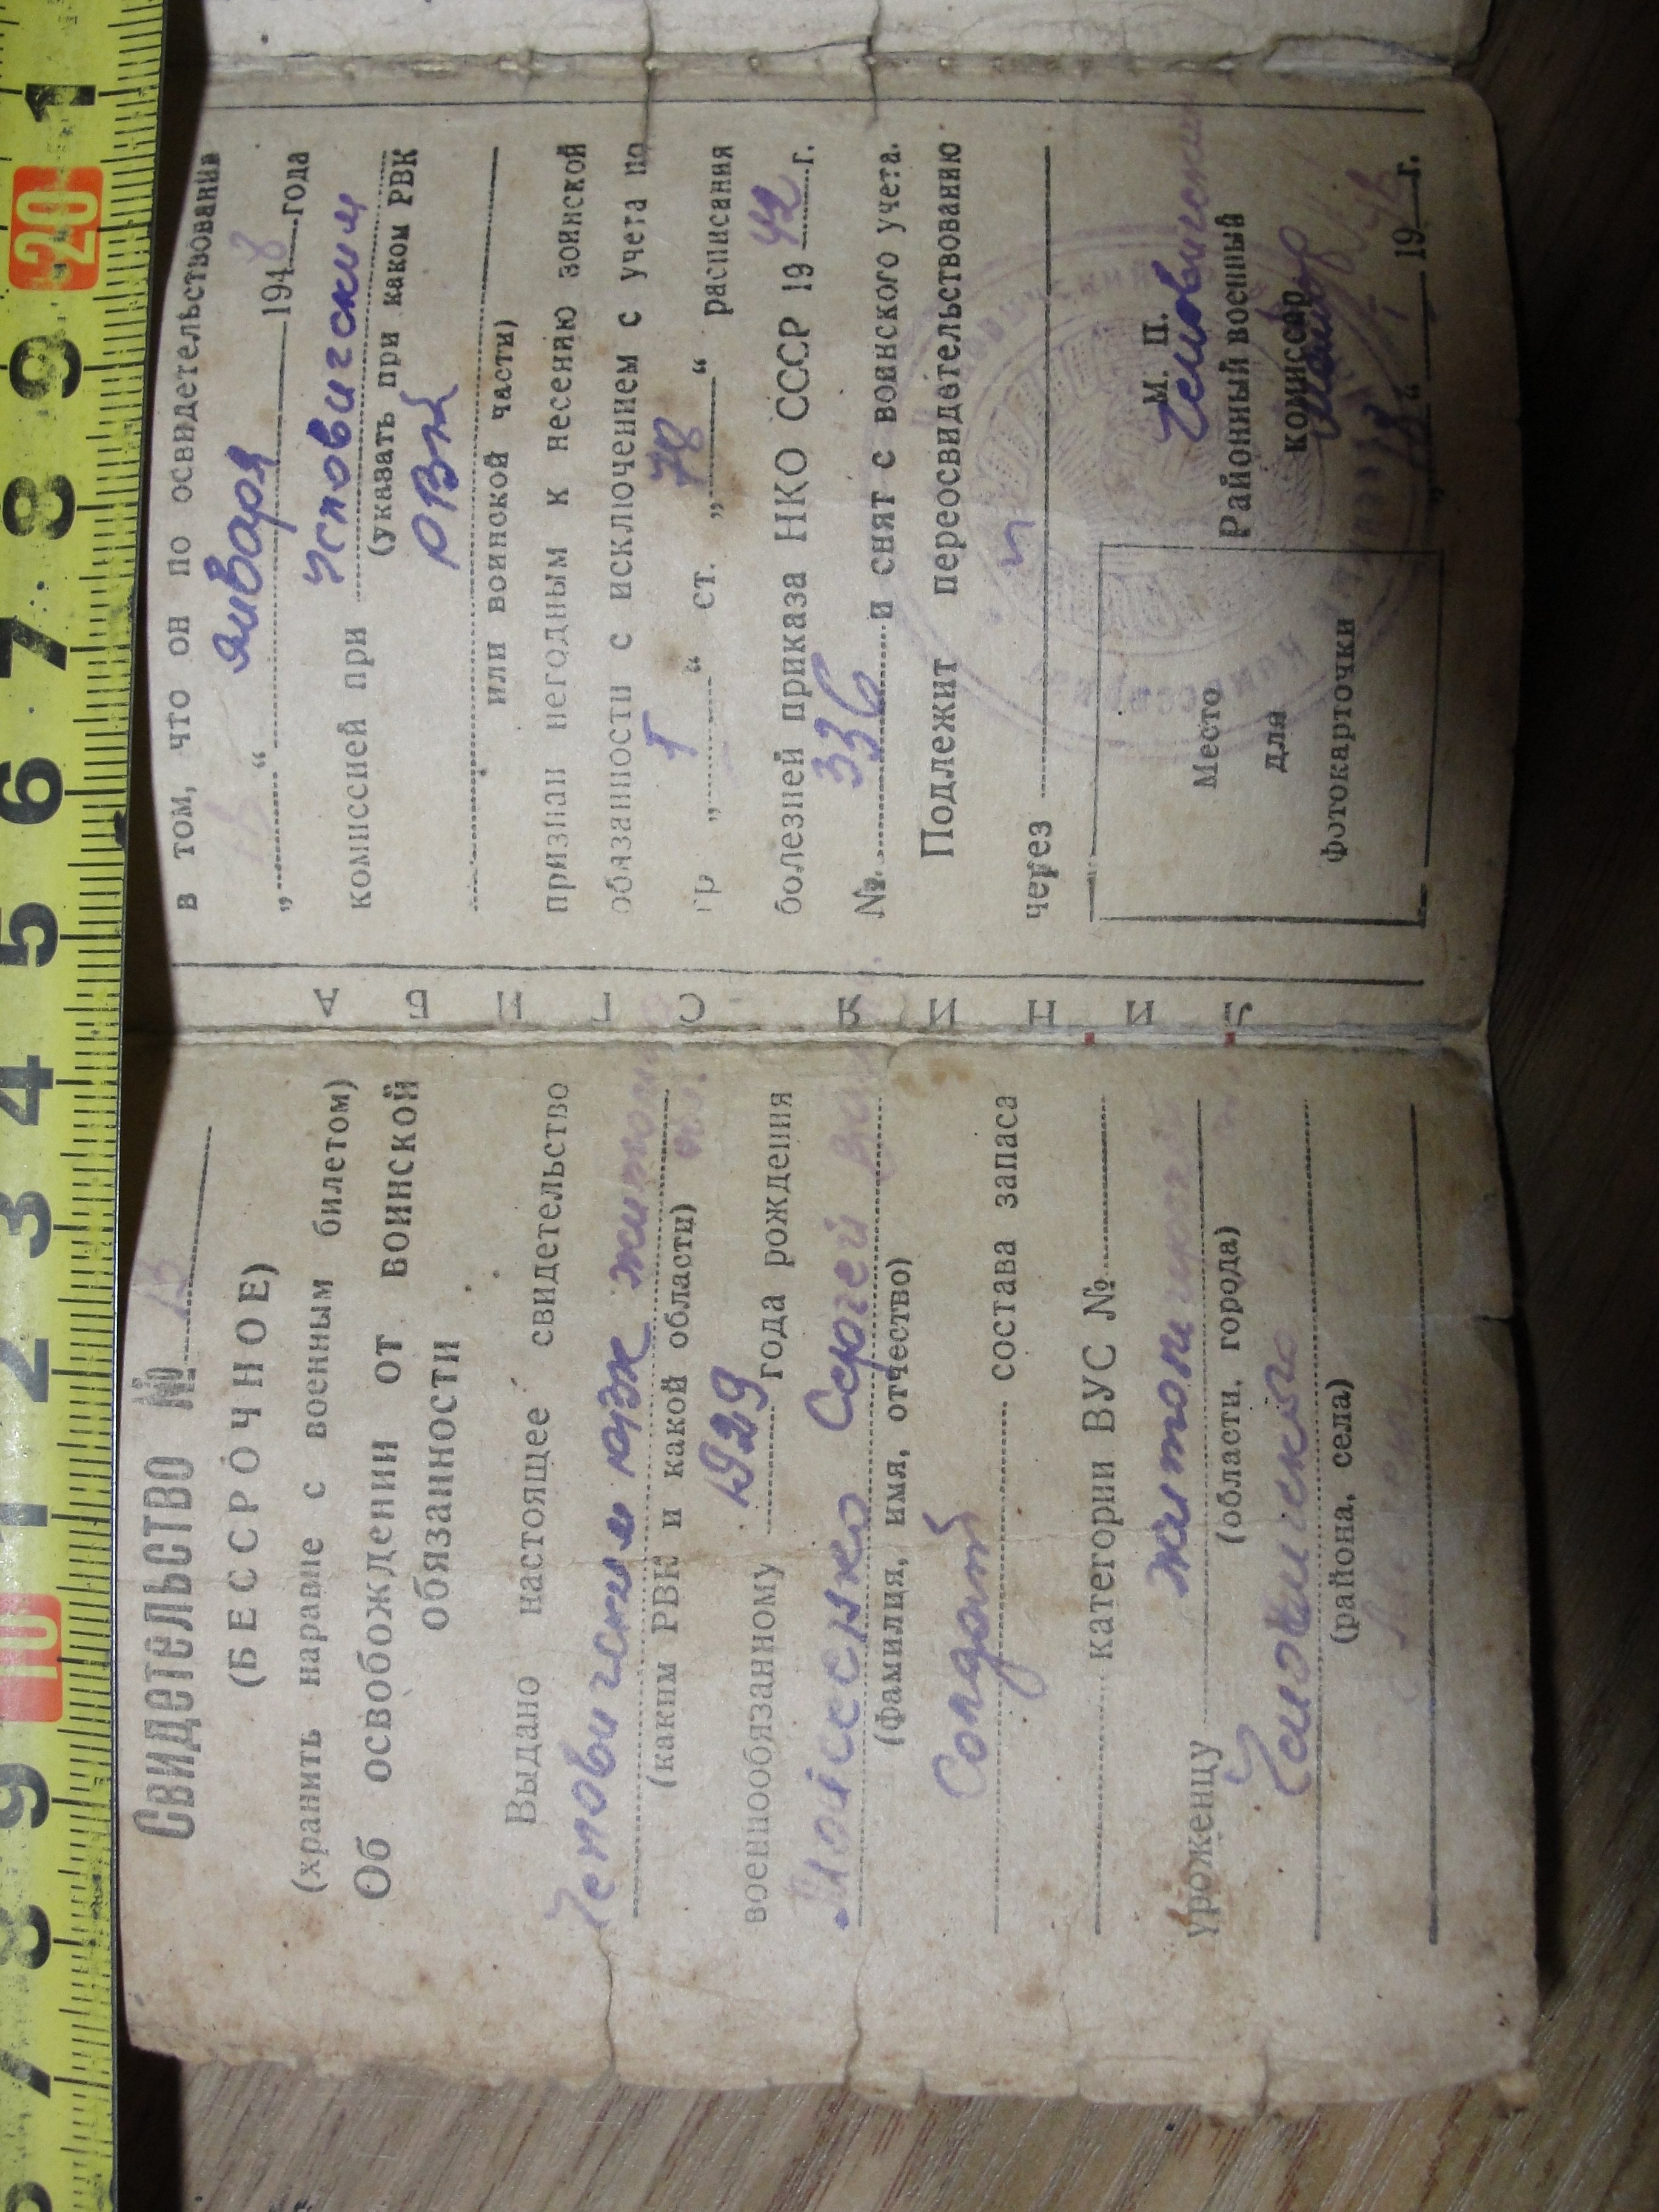 Свидетельство № 13
(БЕССРОЧНОЕ)
(хранить наравне с военным билетом)
Об освобождении от воинской
обязанности
Выдано настоящее свидетельство
(каким РВК и какой области)
военнообязанному 1929 года рождения
Моисеенко Сергей
(фамилия, имя, отчество)
Солдат состава запаса
категории ВУС №
уроженцу
(области, города)
(района, села)
ЛИНИЯ СГИБА
в том, что он по освидетельствовании
„ “ января 1948 года
комиссией при
(указать при каком РВК
РВК
или воинской части)
признан негодным к несению воинской
обязанности с исключением с учета по
гр „ I “ ст. „ 78 “ расписания
болезней приказа НКО СССР 19 42 г.
№ 336 и снят с воинского учета.
Подлежит переосвидетельствованию
через
М. П.
Районный военный
комиссар
„ 18 “ 19 48 г.
Место
для
фотокарточки
1 20 9 8 7 6 5 4 3 2 1 10 9 8 7 6